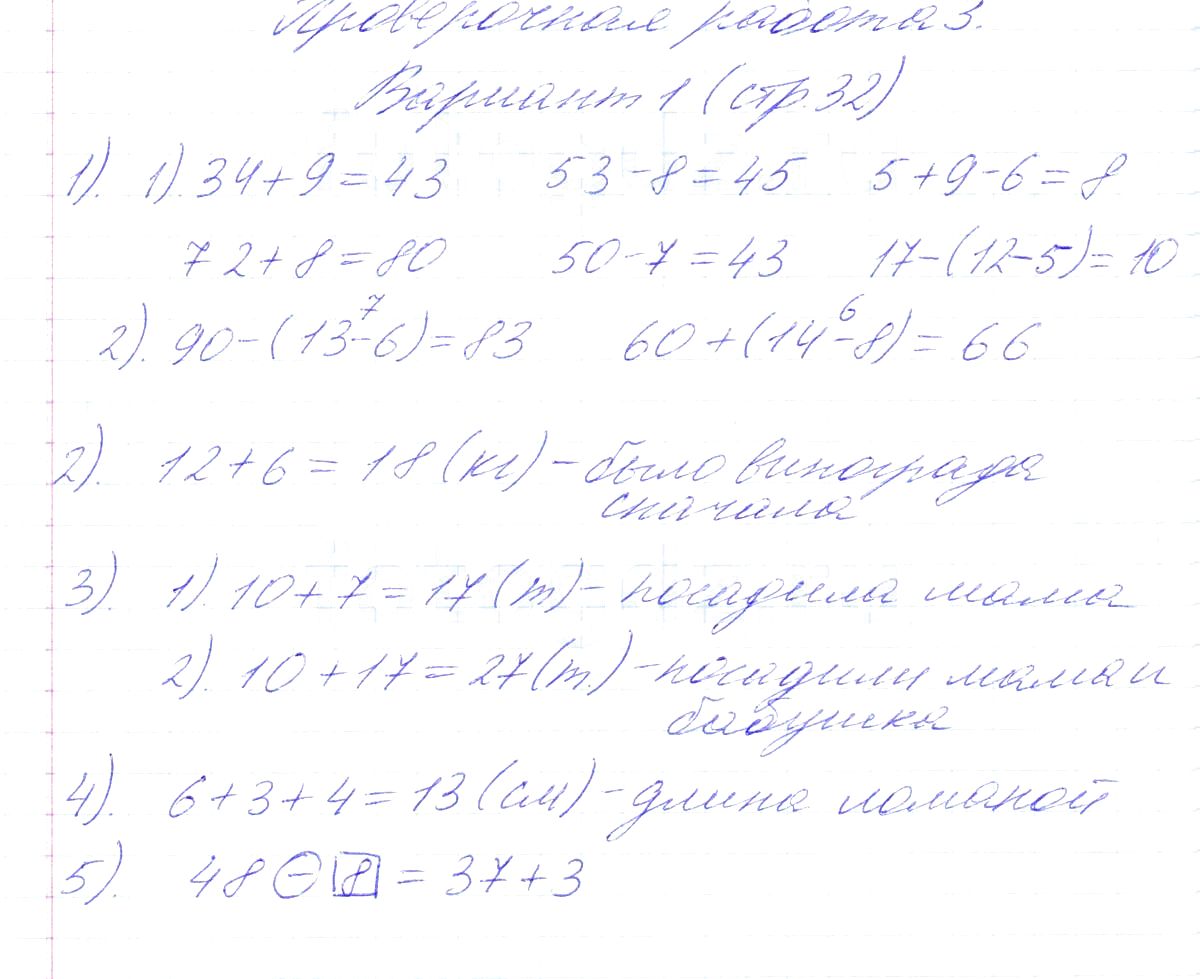 Проверочная работа 3.
Вариант 1 (стр. 32)
1). 1). 34+9=43 53-8=45 5+9-6=8
72+8=80 50-7=43 17-(12-5)=10
7 6
2). 90-(13-6)=83 60+(14-8)=66
2). 12+6=18(кг)-было винограда
сначала
3). 1). 10+7=17(т)-посадила мама
2). 10+17=27(т.)-посадили мама и
бабушка
4). 6+3+4=13(см)-длина ломаной
5). 48 - 8 = 37+3